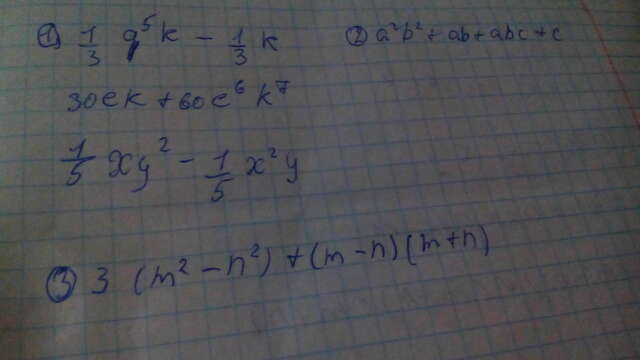 ① 1/3 q⁵k − 1/3 k
② a²b² + ab + abc + c
30ek + 60e⁶k⁷
1/5 xy² − 1/5 x²y
③ 3 (m² − n²) + (m − n)(m + n)